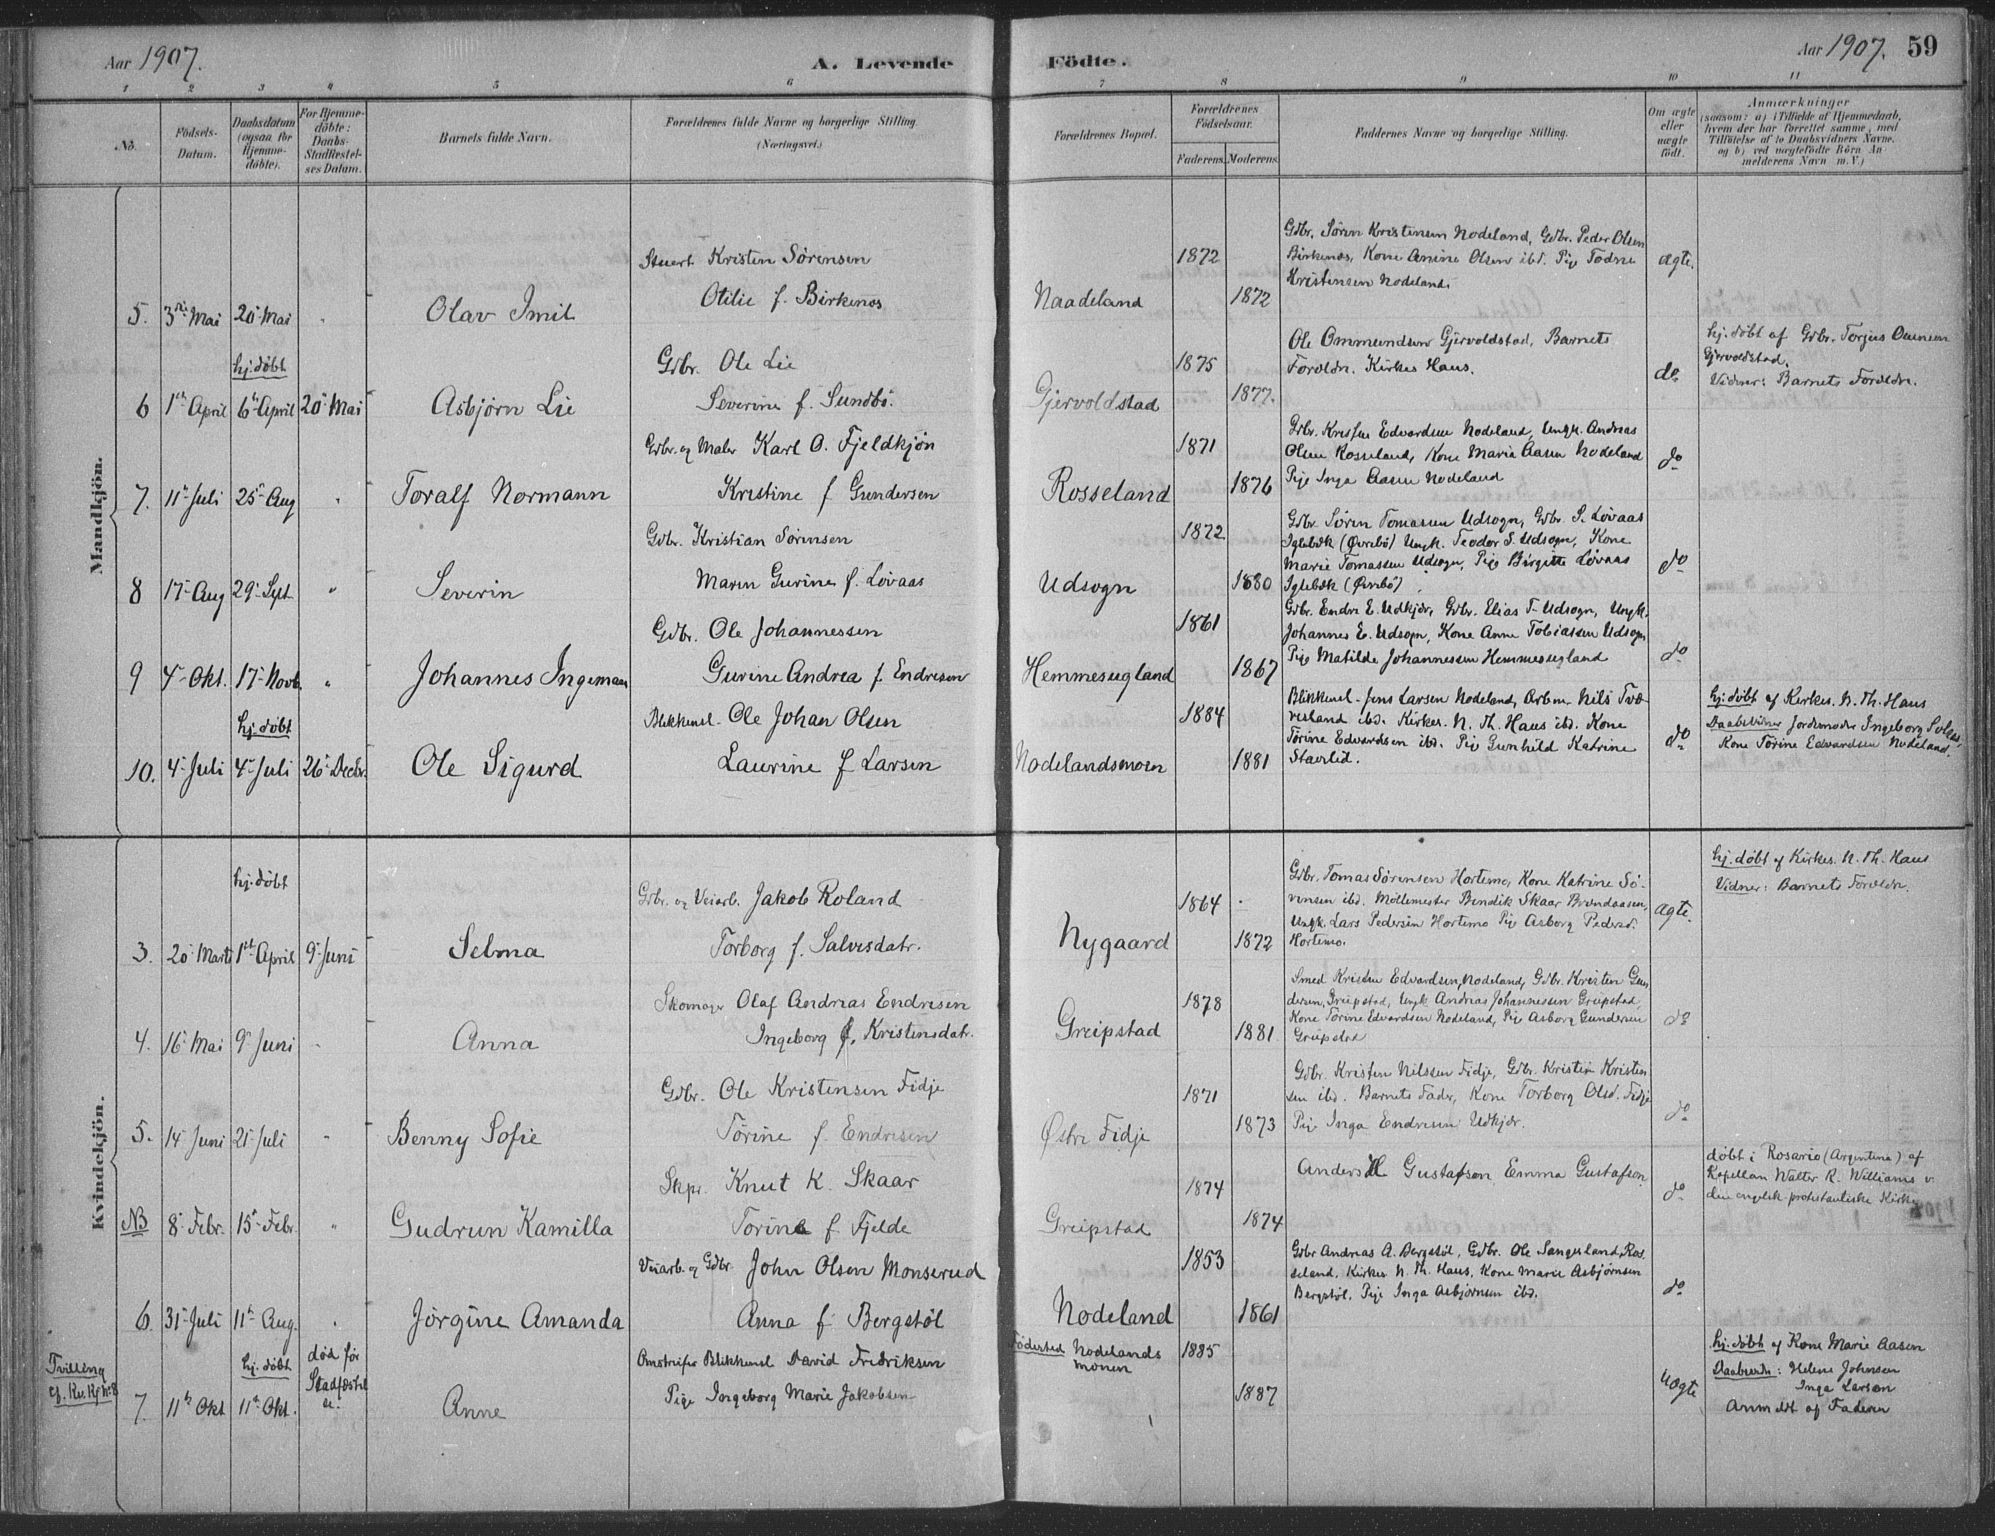 Aar 1907.
A. Levende Födte.
Aar 1907. 59
1 2 3 4 5 6 7 8 9 10 11
No.
Födsels-Datum.
Daabsdatum (ogsaa for Hjemme-döbte).
For Hjemme-döbte: Daabs-Stadfæstel-ses Datum.
Barnets fulde Navn.
Forældrenes fulde Navne og borgerlige Stilling.
(Næringsvei.)
Forældrenes Bopæl.
Forældrenes Födselsaar.
Faderens. Moderens.
Faddernes Navne og borgerlige Stilling.
Om ægte eller uægte födt.
Anmærkninger
(saasom: a) i Tilfælde af Hjemmedaab, hvem der har forrettet samme, med Tilföielse af to Daabsvidners Navne. og b) ved uægtefödte Börn An-melderens Navn m. V.)
Mandkjön.
5. 3die Mai 20 Mai " Olav Imil
Stuert Kristen Sørensen
Otilie f. Birkenes
Naadeland 1872 1872
Gdbr. Sören Kristensen Nodeland, Gdbr. Peder Olsen
Birkenes, Kone Anine Olsen ibd. Pige Todne
Kristensen Nodeland.
ægte.
hj. døbt
6 1ste April 6te April 20 Mai Asbjørn Lie
Gdbr. Ole Lie
Severine f. Sundbö.
Gjervoldstad 1875 1877.
Ole Ommundsen Gjervoldstad, Barnets
Foreldr. Kirkes. Haus.
do
hj. döbt af Gdbr. Torjus Ounsen
Gjervoldstad.
Vidner: Barnets Foreldr.
7. 11te Juli 25 Aug " Toralf Normann
Gdbr. og Maler Karl O. Fjeldkjøn
Kristine f Gundersen
Rosseland 1871 1876
Gdbr. Kristen Edvardsen Nodeland, Ungk. Andreas
Olsen Rosseland, Kone Maria Aasen Nodeland
Pige Inga Aasen Nodeland
do
8 17 Aug 29 Sept " Severin
Gdbr. Kristian Sörensen
Maren Gurine f. Løvaas
Udsogn 1872 1880
Gdbr Sören Tomassen Udsogn, Gdbr. S. Løvaas
Iglebæk (Øvrebö) Ungk. Teodor S. Udsogn, Kone
Marie Tomassen Udsogn, Pige Birgitte Løvaas
Iglebæk (Øvrebö)
do
9 4 Okt. 17 Novb. " Johannes Ingeman
Gdbr. Ole Johannessen
Gurine Andrea f. Endresen
Hemmesugland 1861 1867
Gdbr. Endre E. Udkjær, Gdbr. Elias T. Udsogn, Ungk.
Johannes E. Udsogn, Kone Anne Tobiassen Udsogn
Pige Matilde Johannessen Hemmesugland
do
hj. døbt
10. 4 Juli 4 Juli 26 Decbr. Ole Sigurd
Blikkensl. Ole Johan Olsen
Laurine f Larsen
Nodelandsmoen 1884 1881
Blikkensl. Jens Larsen Nodeland, Arbm. Nils Tve-
resland ibd. Kirkes. N. Th. Haus ibd. Kone
Törine Edvardsen ibd. Pige Gunhild Katrine
Staurlid.
do
hj. döbt af Kirkes. N. Th. Haus
Daabsvidner Jordemoder Ingeborg
Kone Törine Edvardsen Nodeland
Kvindekjön.
hj. döbt
3. 20 Marts 1ste April 9 Juni Selma
Gdbr. og Veiarb. Jakob Roland
Torborg f. Salvesdatr.
Nygaard 1864 1872
Gdbr. Tomas Sörensen Hortemo, Kone Katrine Sö-
rensen ibd. Möllemester Bendik Skaar Brændaasen,
Ungk. Lars Pedersen Hortemo Pige Asborg Pedersd.
Hortemo.
ægte.
hj. döbt af Kirkes. N. Th. Haus
Vidner: Barnets Foreldr.
4. 16 Mai 9 Juni Anna
Skomager Olaf Andreas Endresen
Ingeborg f. Kristensdatr.
Greipstad 1878 1881
Smed Kristen Edvardsen, Nodeland, Gdbr. Kristen Gun-
dersen, Greipstad, Ungk. Andreas Johannessen Greipstad
Kone Törine Edvardsen Nodeland, Pige Asborg Gundersen
Greipstad
do
5. 14 Juni 21 Juli " Benny Sofie
Gdbr. Ole Kristensen Fidje
Törine f. Endresen
Østre Fidje 1871 1873
Gdbr. Kristen Nilssen Fidje, Gdbr. Kristen Kristen
sen ibd. Barnets Fader, Kone Torborg Olsd. Fidje
Pige Inga Endresen Udkjær.
do
NB 8 Febr. 15 Febr. " Gudrun Kamilla
Skpr. Knut K. Skaar
Torine f Fjelde
Greipstad 1874 1874
Anders H. Gustafson Emma Gustafson
do
döbt i Rosario (Argentina) af
Kapellan Walter R. Williams v.
den engelsk protestantiske Kirke
6. 31 Juli 11te Aug. Jørgine Amanda
Veiarb. og Gdbr. John Olsen Monserud
Anna f Bergstöl
Nodeland 1853 1861
Gdbr Andreas A. Bergstöl, Gdbr. Ole Sangesland, Ros-
seland, Kirkes. N. Th. Haus, Kone Marie Asbjørnsen
Bergstöl, Pige Inga Asbjørnsen ibd.
do
Tvilling
hj. döbt
död før
7. 11te Okt 11te Okt. Anne
Omstreifer Blikkensl David Fredriksen
Pige Ingeborg Marie Jakobsen
Födested Nodelands
monen 1885 1887
uægte
hj. döbt af Kone Marie Aasen
Daabsvidn: Helene Johnsen
Inga Larsen
Anmeldt af Faderen